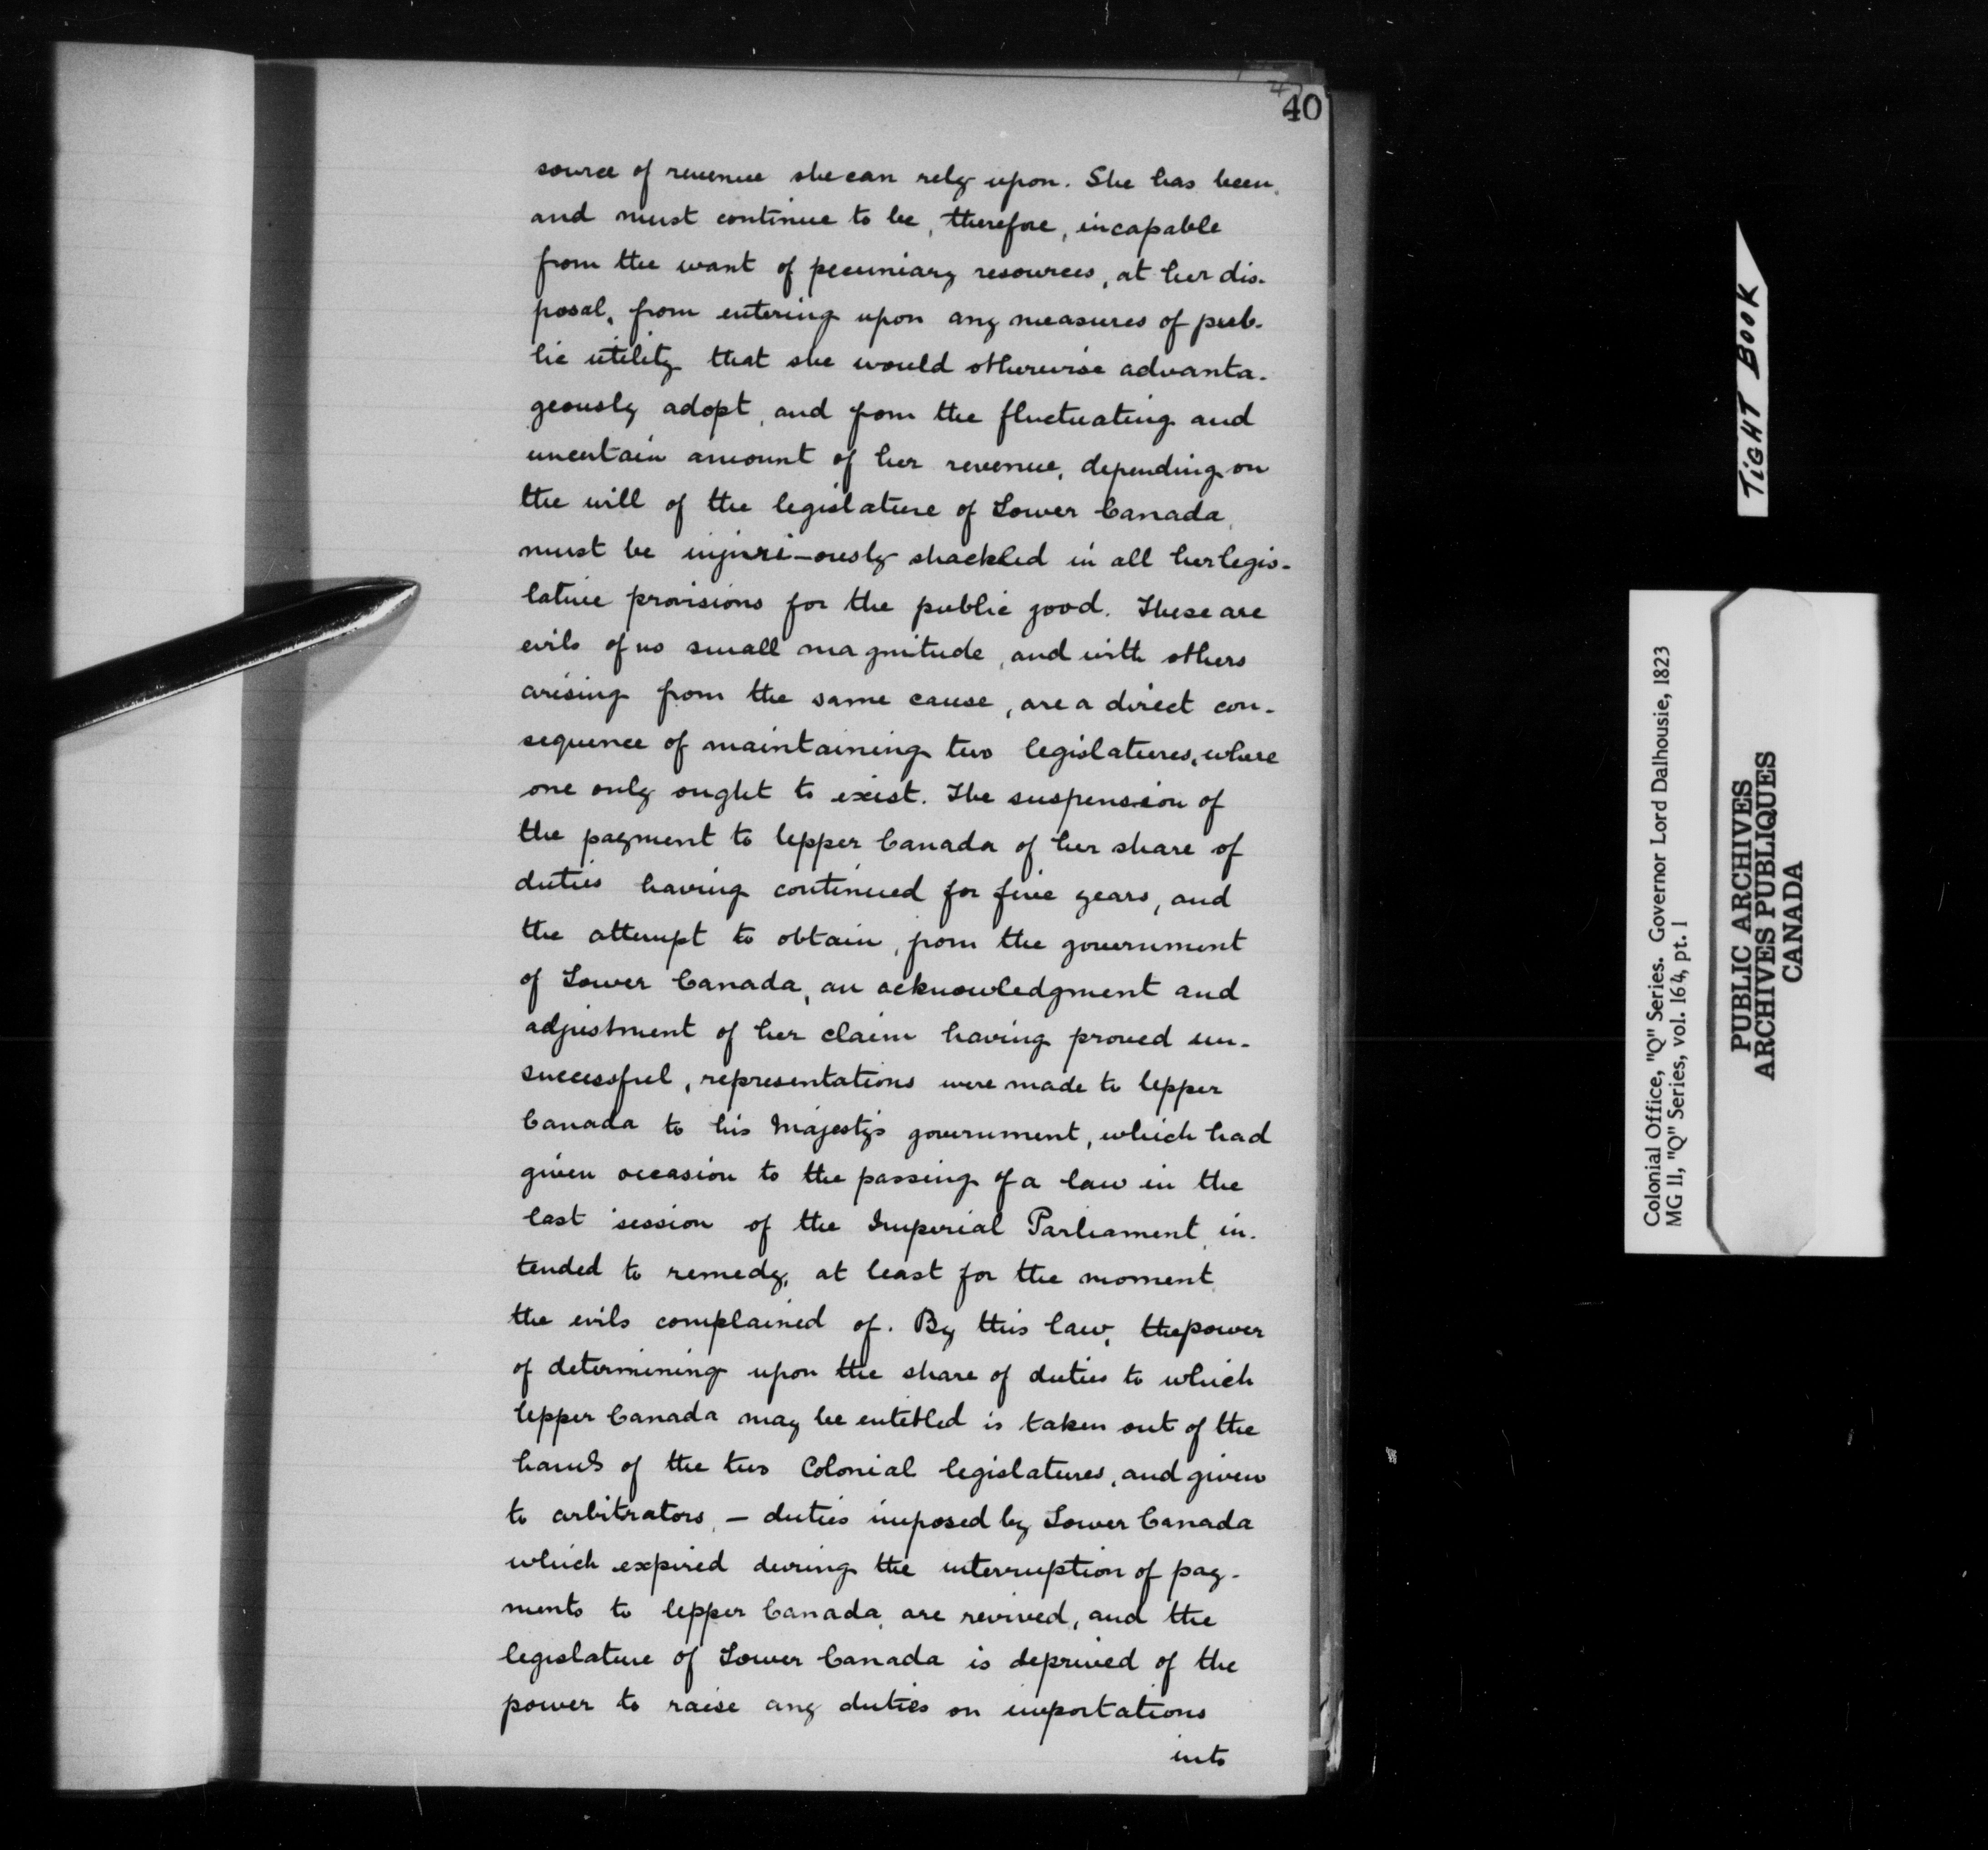 40
source of revenue she can rely upon. She has been,
and must continue to be, therefore, incapable
from the want of pecuniary resources, at her dis-
posal, from entering upon any measures of pub-
lic utility that she would otherwise advanta-
geously adopt, and from the fluctuating and
uncertain amount of her revenue, depending on
the will of the legislature of Lower Canada,
must be injuri-ously shackled in all her legis-
lative provisions for the public good. These are
evils of no small magnitude, and with others
arising from the same cause, are a direct con-
sequence of maintaining two legislatures, where
one only ought to exist. The suspension of
the payment to Upper Canada of her share of
duties having continued for five years, and
the attempt to obtain, from the government
of Lower Canada, an acknowledgment and
adjustment of her claim having proved un-
successful, representations were made to Upper
Canada to his Majesty's government, which had
given occasion to the passing of a law in the
last session of the Imperial Parliament, in-
tended to remedy, at least for the moment,
the evils complained of. By this law, the power
of determining upon the share of duties to which
Upper Canada may be entitled is taken out of the
hands of the two Colonial legislatures, and given
to arbitrators, - duties imposed by Lower Canada
which expired during the interruption of pay-
ments to Upper Canada, are revived, and the
legislature of Lower Canada is deprived of the
power to raise any duties on importations
into
TIGHT BOOK
Colonial Office, "Q" Series. Governor Lord Dalhousie, 1823
MG 11, "Q" Series, vol. 164, pt. 1
PUBLIC ARCHIVES
ARCHIVES PUBLIQUES
CANADA